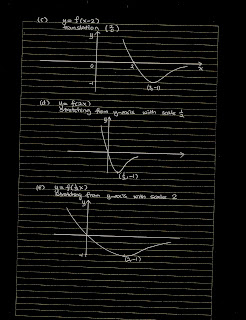 (c) y = f(x-2)
translation
y
0 2 x
-1
(3,-1)
(d) y = f(2x)
Stretching from y-axis with scale 1/2
y
x
(1/2,-1)
(e) y = f(1/2x)
Stretching from y-axis with scale 2
y
x
-1
(2,-1)